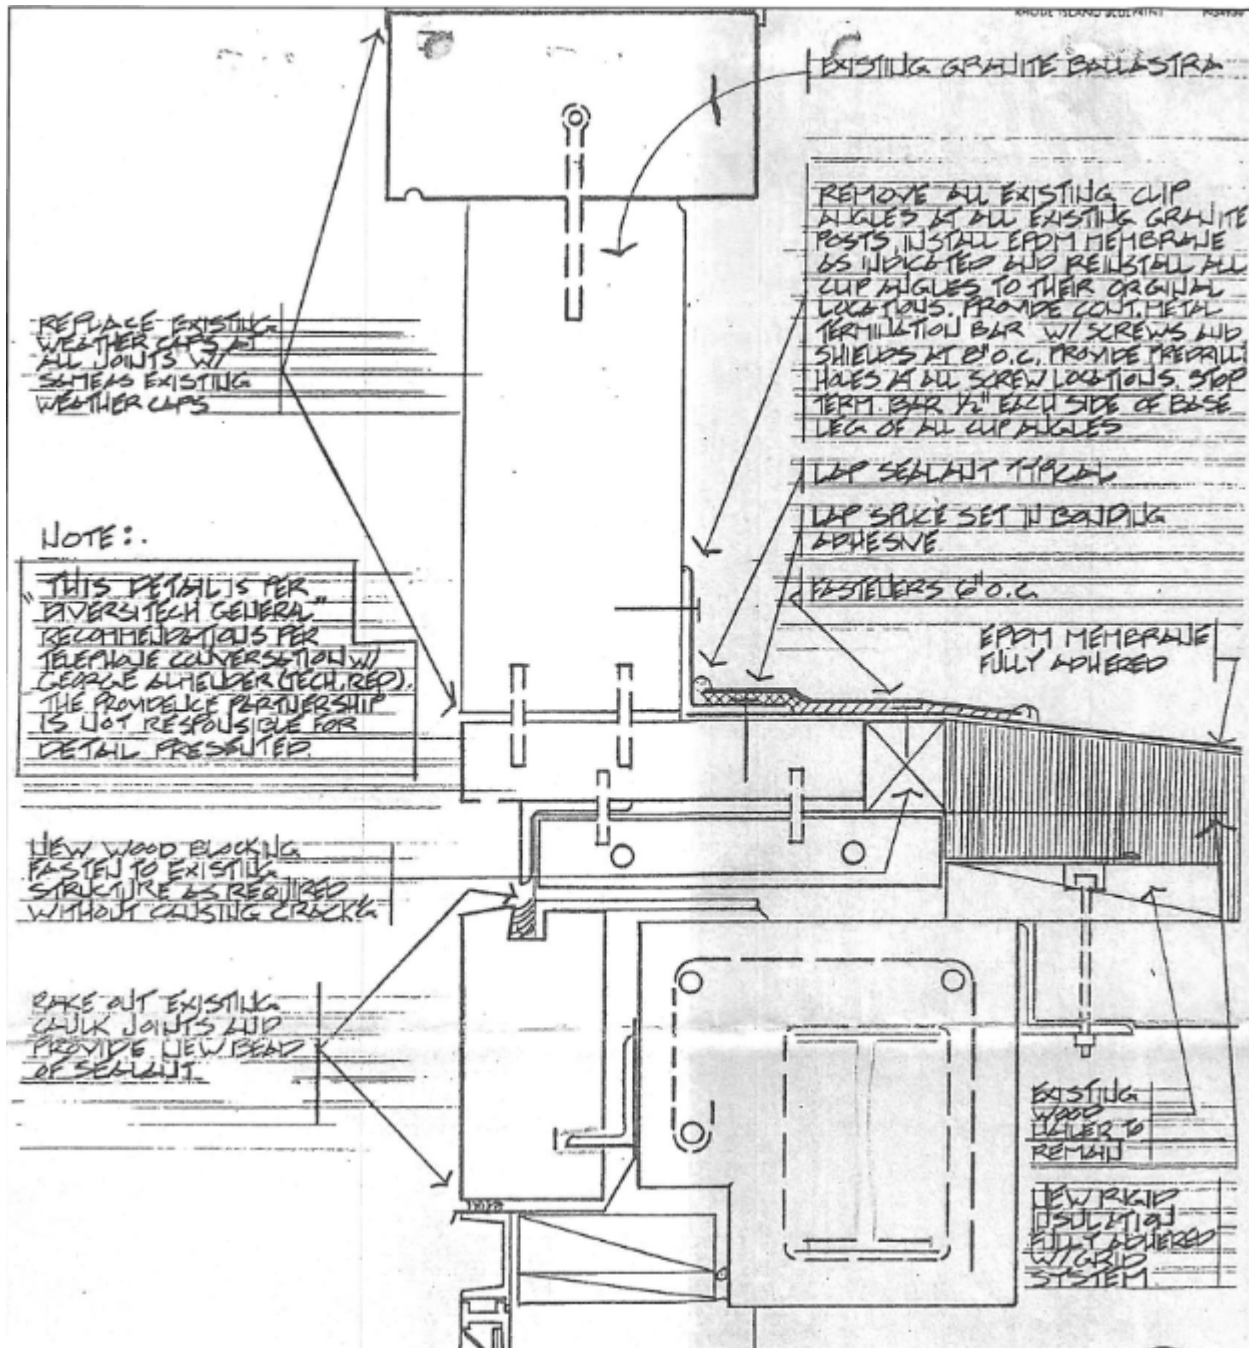 RHODE ISLAND BLUEPRINT
EXISTING GRANITE BALLASTRA
REMOVE ALL EXISTING CLIP
ANGLES AT ALL EXISTING GRANITE
POSTS, INSTALL EPDM MEMBRANE
AS INDICATED AND REINSTALL ALL
CLIP ANGLES TO THEIR ORGINAL
LOCATIONS. PROVIDE CONT. METAL
TERMINATION BAR W/ SCREWS AND
SHIELDS AT 8" O.C. PROVIDE PREDRILL
HOLES AT ALL SCREW LOCATIONS. STOP
TERM. BAR 1/2" EACH SIDE OF BASE
LEG OF ALL CLIP ANGLES
LAP SEALANT TYPICAL
LAP SPLICE SET IN BONDING
ADHESIVE
FASTENERS 6" O.C.
EPDM MEMBRANE
FULLY ADHERED
REPLACE EXISTING
WEATHER CAPS AT
ALL JOINTS W/
SAME AS EXISTING
WEATHER CAPS
NOTE:
"THIS DETAIL IS PER
DIVERSITECH GENERAL"
RECOMMENDATIONS PER
TELEPHONE CONVERSATION W/
GEORGE (TECH. REP).
THE PROVIDENCE PARTNERSHIP
IS NOT RESPONSIBLE FOR
DETAIL PRESENTED.
NEW WOOD BLOCKING
FASTEN TO EXISTING
STRUCTURE AS REQUIRED
WITHOUT CAUSING CRACK'G
RAKE OUT EXISTING
CAULK JOINTS AND
PROVIDE NEW BEAD
OF SEALANT
EXISTING
WOOD
NAILER TO
REMAIN
NEW RIGID
INSULATION
FULLY ADHERED
W/ GRID
SYSTEM